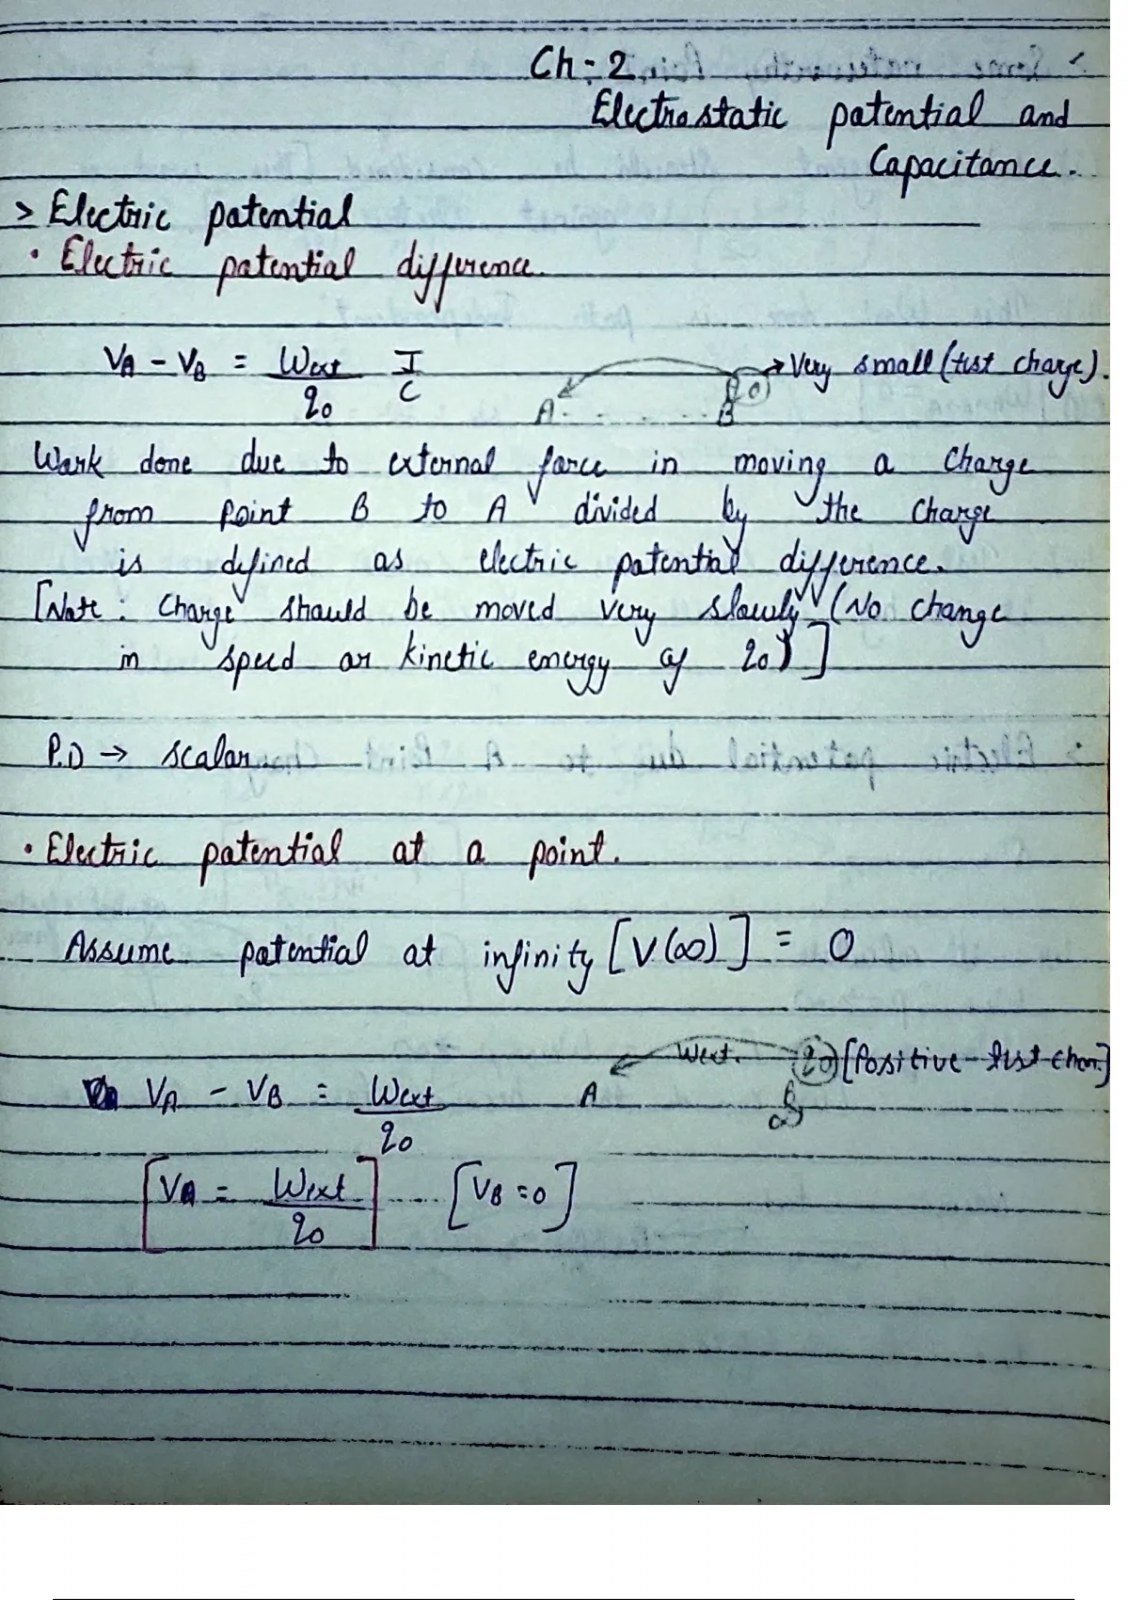 Ch:2
Electrostatic potential and
Capacitance.
> Electric potential
• Electric potential difference.
VA - VB = Wext / q0 J/C
Very small (test charge).
q0
A B
Work done due to external force in moving a charge
from point B to A divided by the charge
is defined as electric potential difference.
[Note: Charge should be moved very slowly (No change
in speed or kinetic energy of q0)]
P.D → scalar
• Electric potential at a point.
Assume potential at infinity [V(∞)] = 0
Wext. q0 [Positive test char.]
VA - VB = Wext / q0
A B
∞
[VA = Wext / q0] [VB = 0]